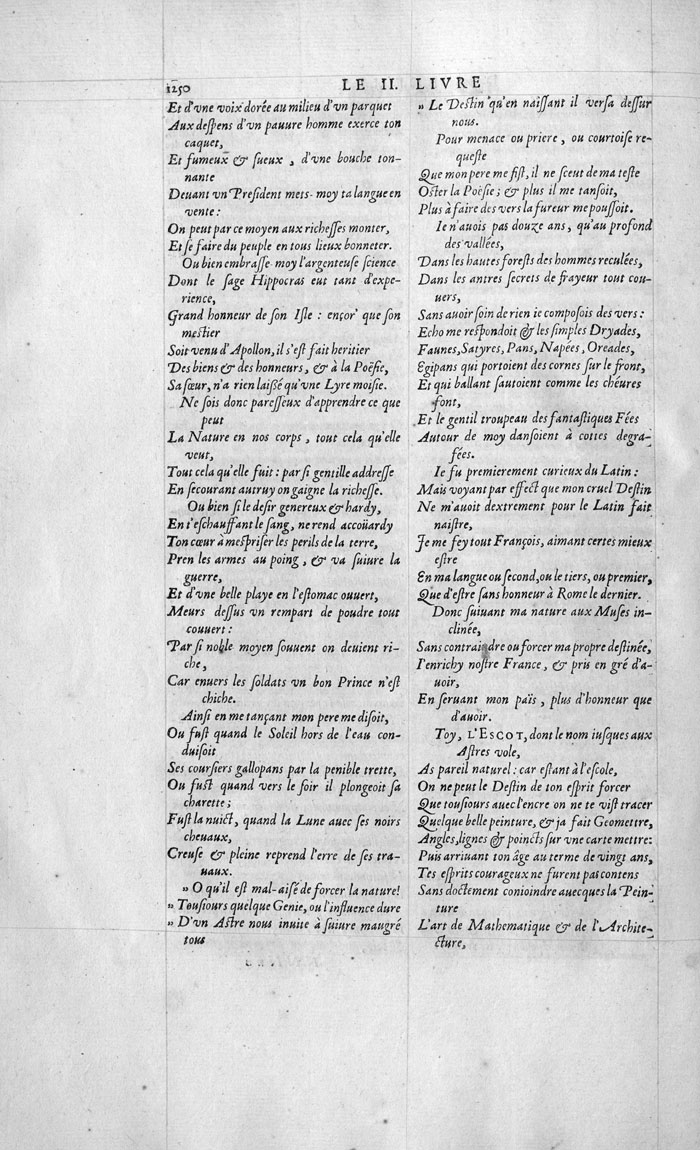 1250
LE II. LIVRE
Et d'vne voix dorée au milieu d'vn parquet
Aux despens d'vn pauure homme exerce ton
caquet,
Et fumeux & sueux, d'vne bouche ton-
nante
Deuant vn President mets-moy ta langue en
vente:
On peut par ce moyen aux richesses monter,
Et se faire du peuple en tous lieux bonneter.
Ou bien embrasse-moy l'argenteuse science
Dont le sage Hippocras eut tant d'expe-
rience,
Grand honneur de son Isle: ençor' que son
mestier
Soit venu d'Apollon, il s'est fait heritier
Des biens & des honneurs, & à la Poësie,
Sa sœur, n'a rien laißé qu'vne Lyre moisie.
Ne sois donc paresseux d'apprendre ce que
peut
La Nature en nos corps, tout cela qu'elle
veut,
Tout cela qu'elle fuit: par si gentille addresse
En secourant autruy on gaigne la richesse.
Ou bien si le desir genereux & hardy,
En t'eschauffant le sang, ne rend accoüardy
Ton cœur à mespriser les perils de la terre,
Pren les armes au poing, & va suiure la
guerre,
Et d'vne belle playe en l'estomac ouuert,
Meurs dessus vn rempart de poudre tout
couuert:
Par si noble moyen souuent on deuient ri-
che,
Car enuers les soldats vn bon Prince n'est
chiche.
Ainsi en me tançant mon pere me disoit,
Ou fust quand le Soleil hors de l'eau con-
duisoit
Ses coursiers gallopans par la penible trette,
Ou fust quand vers le soir il plongeoit sa
charette;
Fust la nuict, quand la Lune auec ses noirs
cheuaux,
Creuse & pleine reprend l'erre de ses tra-
uaux.
» O qu'il est mal-aisé de forcer la nature!
» Tousiours quelque Genie, ou l'influence dure
» D'vn Astre nous inuite à suiure maugré
tous
» Le Destin qu'en naissant il versa dessur
nous.
Pour menace ou priere, ou courtoise re-
queste
Que mon pere me fist, il ne sceut de ma teste
Oster la Poësie; & plus il me tansoit,
Plus à faire des vers la fureur me poussoit.
Ie n'auois pas douze ans, qu'au profond
des vallées,
Dans les hautes forests des hommes reculées,
Dans les antres secrets de frayeur tout cou-
uers,
Sans auoir soin de rien ie composois des vers:
Echo me respondoit & les simples Dryades,
Faunes, Satyres, Pans, Napées, Oreades,
Egipans qui portoient des cornes sur le front,
Et qui ballant sautoient comme les chéures
font,
Et le gentil troupeau des fantastiques Fées
Autour de moy dansoient à cottes degra-
fées.
Ie fu premierement curieux du Latin:
Mais voyant par effect que mon cruel Destin
Ne m'auoit dextrement pour le Latin fait
naistre,
Je me fey tout François, aimant certes mieux
estre
En ma langue ou second, ou le tiers, ou premier,
Que d'estre sans honneur à Rome le dernier.
Donc suiuant ma nature aux Muses in-
clinée,
Sans contraindre ou forcer ma propre destinée,
I'enrichy nostre France, & pris en gré d'a-
uoir,
En seruant mon païs, plus d'honneur que
d'auoir.
Toy, L'ESCOT, dont le nom iusques aux
Astres vole,
As pareil naturel: car estant à l'escole,
On ne peut le Destin de ton esprit forcer
Que tousiours auec l'encre on ne te vist tracer
Quelque belle peinture, & ja fait Geometre,
Angles, lignes & poincts sur vne carte mettre:
Puis arriuant ton âge au terme de vingt ans,
Tes esprits courageux ne furent pas contens
Sans doctement conioindre auecques la Pein-
ture
L'art de Mathematique & de l'Archite-
cture,